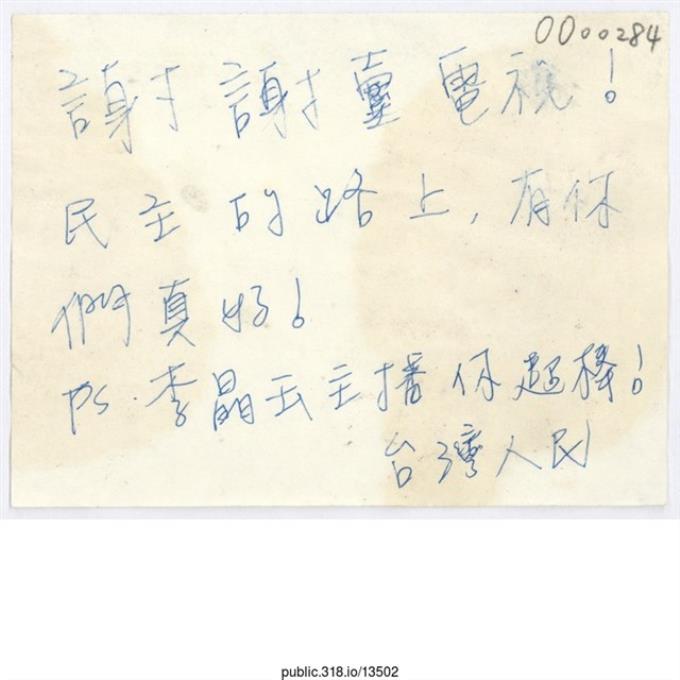 0000284
謝謝臺電視!
民主的路上,有你
們真好!
PS.李晶玉主播你超棒!
台灣人民
public.318.io/13502